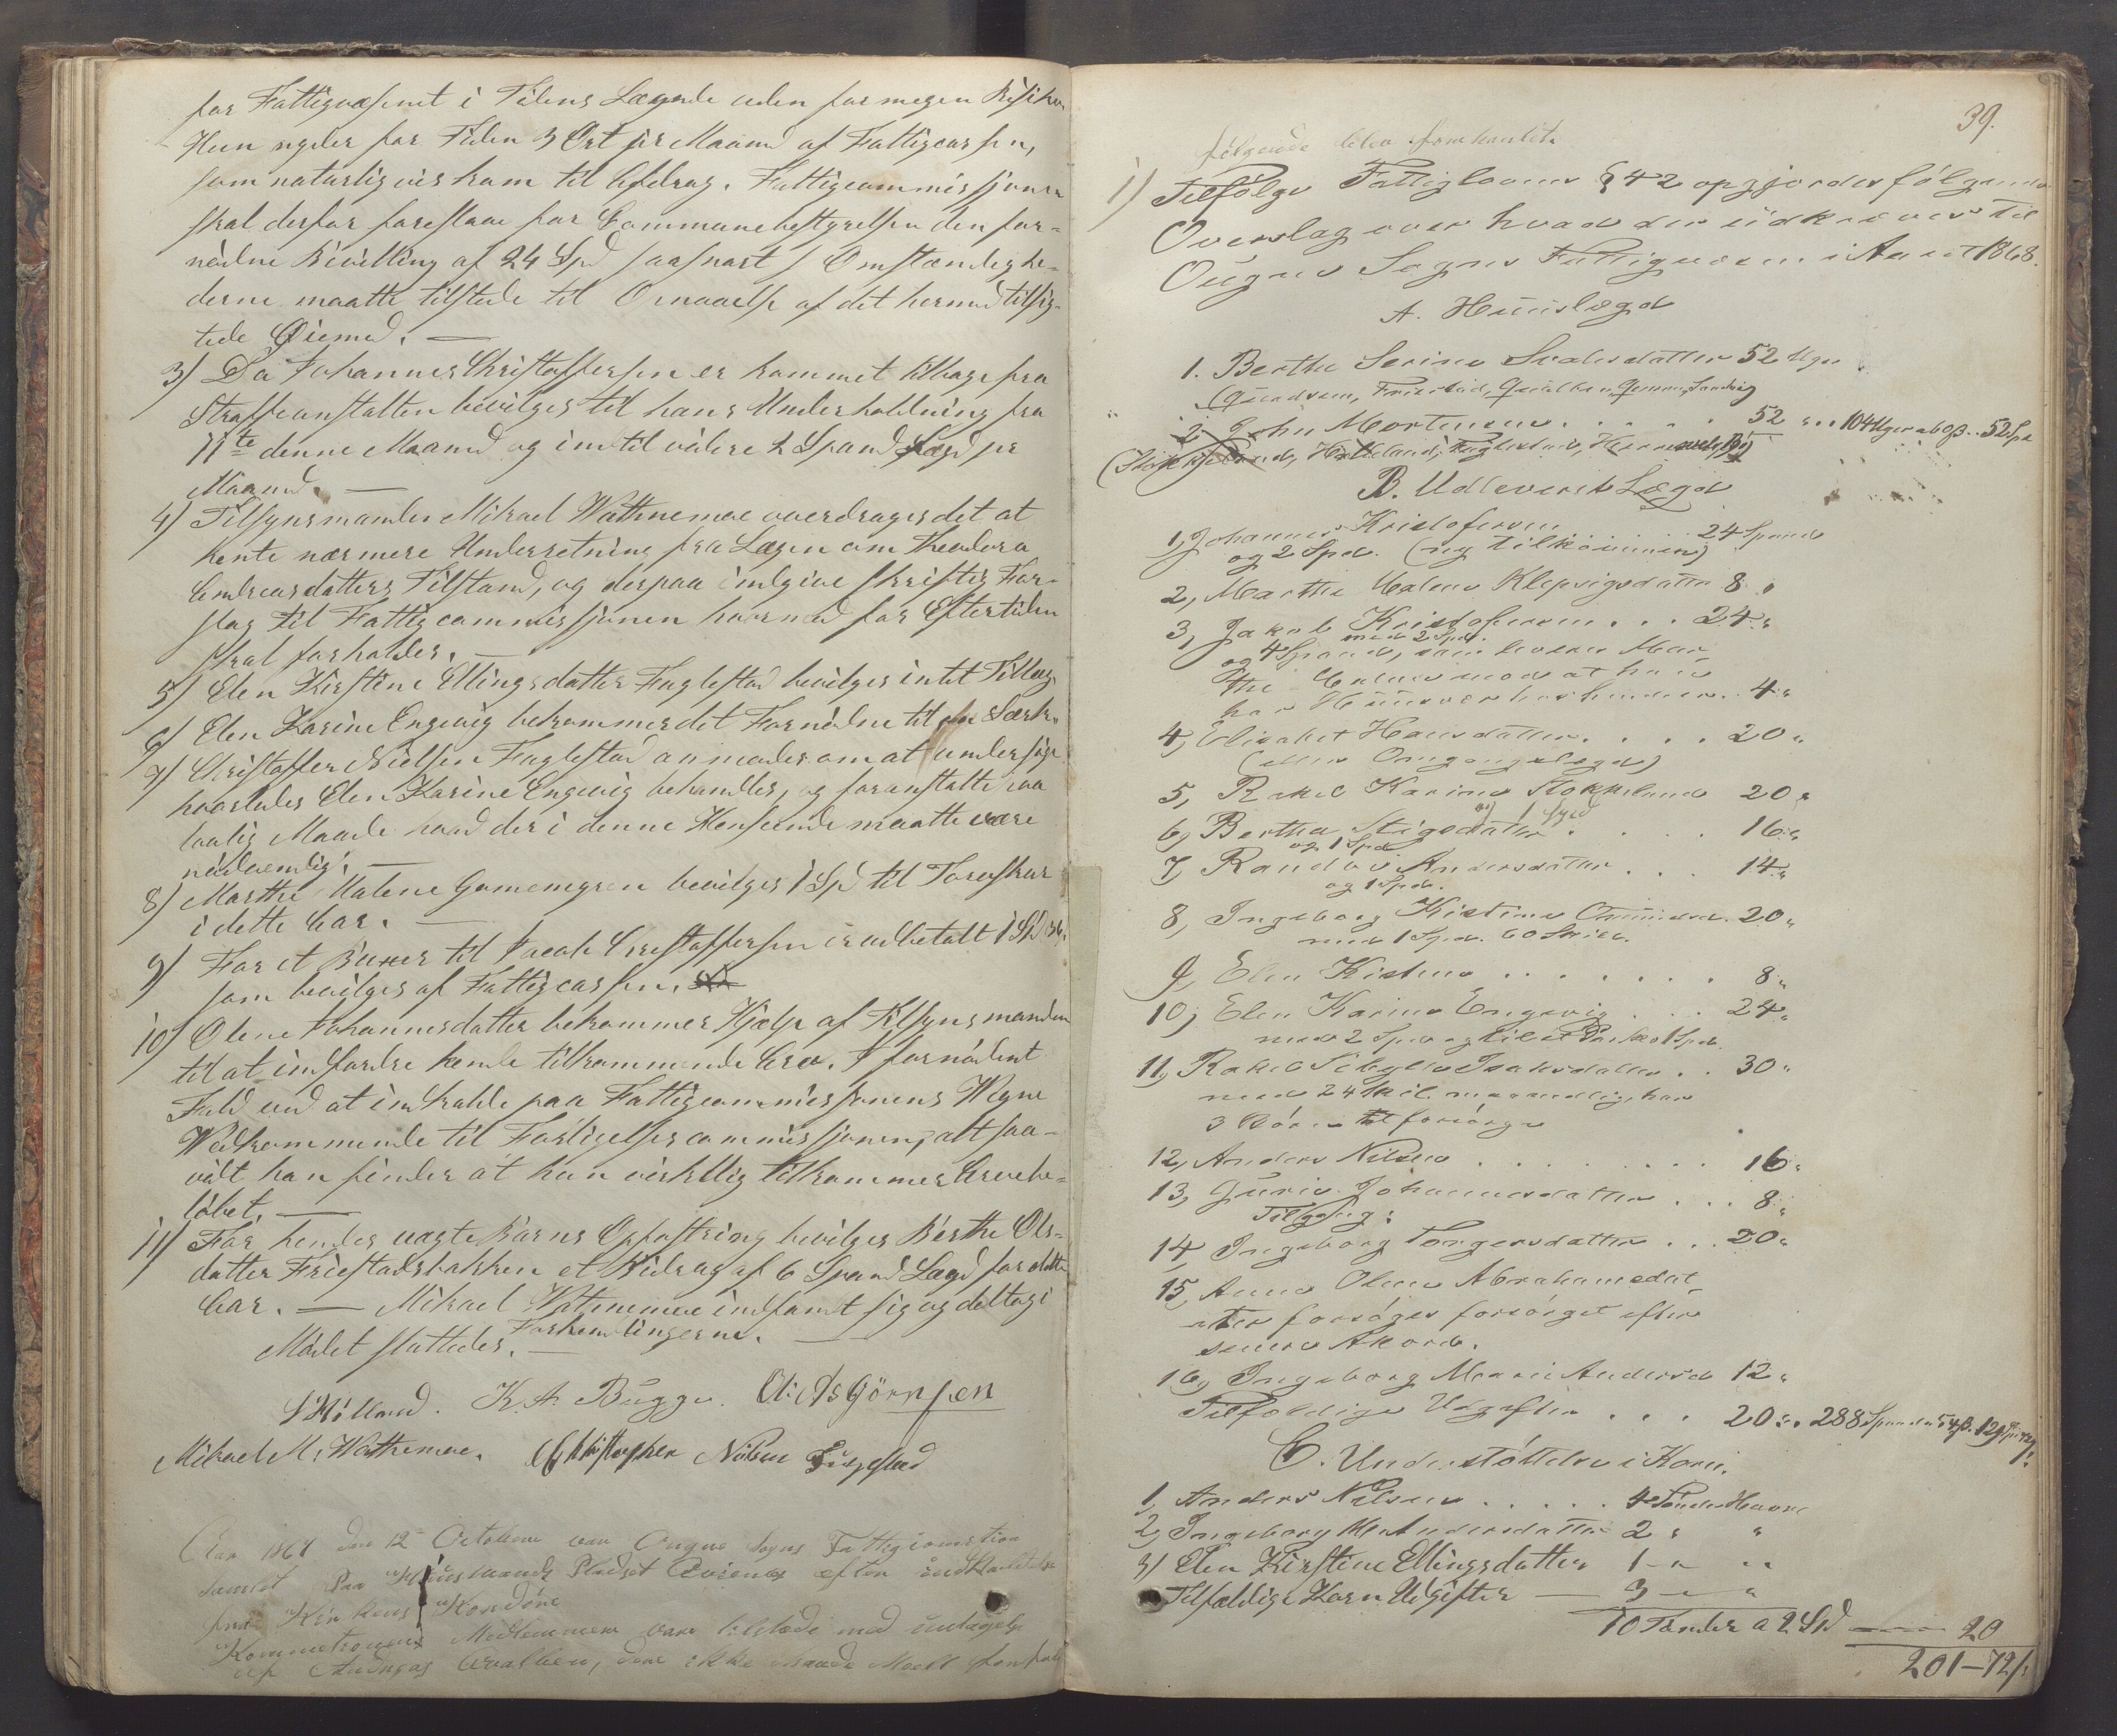 for Fattigvæsenet i Tidens Længde uden for megen Risiko.
Hun nyder for Tiden 3 Ort pr Maaned af Fattigcassen,
som naturligvis kom til Afdrag. Fattigcommissjonen
skal derfor foreslaae for Communebestyrelsen den for-
nødne Bevilling af 24 Spd saasnart Omstændighe-
derne maatte tilstede til Opnaaelse af det hermed tilsig-
tede Øiemed. —
3) Da Johannes Christoffersen er kommet tilbage fra
Straffeanstalten bevilges til hans Underholdning fra
11te denne Maaned og indtil videre 2 Spand Lægd pr
Maaned. —
4) Tilsynsmanden Mikael Wathnemoe overdrages det at
hente nærmere Underretning fra Lægen om Theodora
Andreasdatters Tilstand, og derpaa indgive skriftlig For-
slag til Fattigcommissjonen hvormed for Eftertiden
skal forholdes. —
5) Elen Kirstine Ellingsdatter Fuglestad bevilges intet Tillæg.
6) Elen Karine Engevig bekommer det Fornødne til
7) Christoffer Nielsen Fuglestad anmodes om at undersøge
hvorledes Elen Karine Engevig behandles, og foranstalte paa
lovlig Maade hvad der i denne Henseende maatte være
nødvendig. —
8) Marthe Malene Gamemyren bevilges 1 Spd til Torvskur
i dette Aar. —
9) For et Buxer til Jacob Christoffersen er udbetalt 1 Spd
som bevilges af Fattigcassen.
10) Olene Johannesdatter bekommer Hjælp af Tilsynsmanden
til at indfordre hende tilkommende Arv. I fornødent
Fald ved at indkalde paa Fattigcommissjonens Wegne
Wedkommende til Forligelsescommissjonen, alt saa-
vidt han finder at hun virkelig tilkommer Arvebe-
løbet. —
11) For hendes uægte Barns Opfostring bevilges Berthe Ols-
datter Friestadsbakken et Bidrag af 6 Spand Lægd for dette
Aar. — Mikael Wathnemoe indfandt sig og deltog i
Forhandlingerne. —
Mødet sluttedes.
K. A. Bugge. O. Asbjörnsen
Mikael M. Wathnemoe. Christopher Nilsen Fuglestad
Aar 1867 den 12 October var Ougne Sogns Fattigcomistion
samlet paa Huusmands Pladset efter indkaldelse
fra
Kommetionens Medlemmer vare tilstede med undtagelse
af
39.
følgende blev forhandlet.
1) Tilfölge Fattiglovens § 42 opgjordes fölgende
Overslag over hvad der udkræves til
Ougne Sogns Fattigvæsen i Aaret 1868.
A. Huuslægd
1. Berthe Serine Svalesdatter 52 Uger
2 John Mortensen . . . . . 52 " . . 104 Uger a 60 ß . . 52 Spd
B. Udleverit Lægd
1, Johannes Kristofersen . . . 24 Spand
og 2 Spd. (ny tilkommen)
2, Marthe Malene Klepsigsdatter 8 "
3, Jakob Kristofersen . . . 24 "
med 2 Spd.
og 4 Spand, som leveres Mar-
the Malene mod at han
har Huusvær hos hende . . 4 "
4, Elisabet Hansdatter . . . . 20 "
(eller Omgangslægd)
5, Rakel Karine Stokkeland 20 "
og 1 Spd
6, Berthe Stigsdatter . . . . 16 "
og 1 Spd
7, Randvi Andersdatter . . . 14 "
og 1 Spd.
8, Ingeborg Kistine 20 "
med 1 Spd. 60 Skill.
9, Elen Kistine . . . . . . . 8 "
10, Elen Karine Engevig . . . 24 "
med 2 Spd og til 1 Spd.
11, Rakel Sibylle Isaksdatter . . 30 "
med 24 Skil. maanedlig, har
3 Börn at forsörge
12, Anders Nilsen . . . . . . . 16 "
13, Gurie Johannesdatter . . . 8 "
14, Ingeborg Torgersdatter . . . 20 "
15, Anne Oline Abrahamsdat-
ter forsöges forsörget efter
senere Akord.
16, Ingeborg Marie Andersd 12 "
Tilfældige Udgifter . . . 20 " . . 288 Spand a 54 ß.
C. Understöttelse i Korn.
1, Anders Nilsen . . . . . 4 Tönder Havre
2, Ingeborg M. Andersdatter 2 " "
3) Elen Kirstine Ellingsdatter 1 — " "
Tilfældige Korn Udgifter — 3 — " "
10 Tønder a 2 Spd — 20
201–72 ß